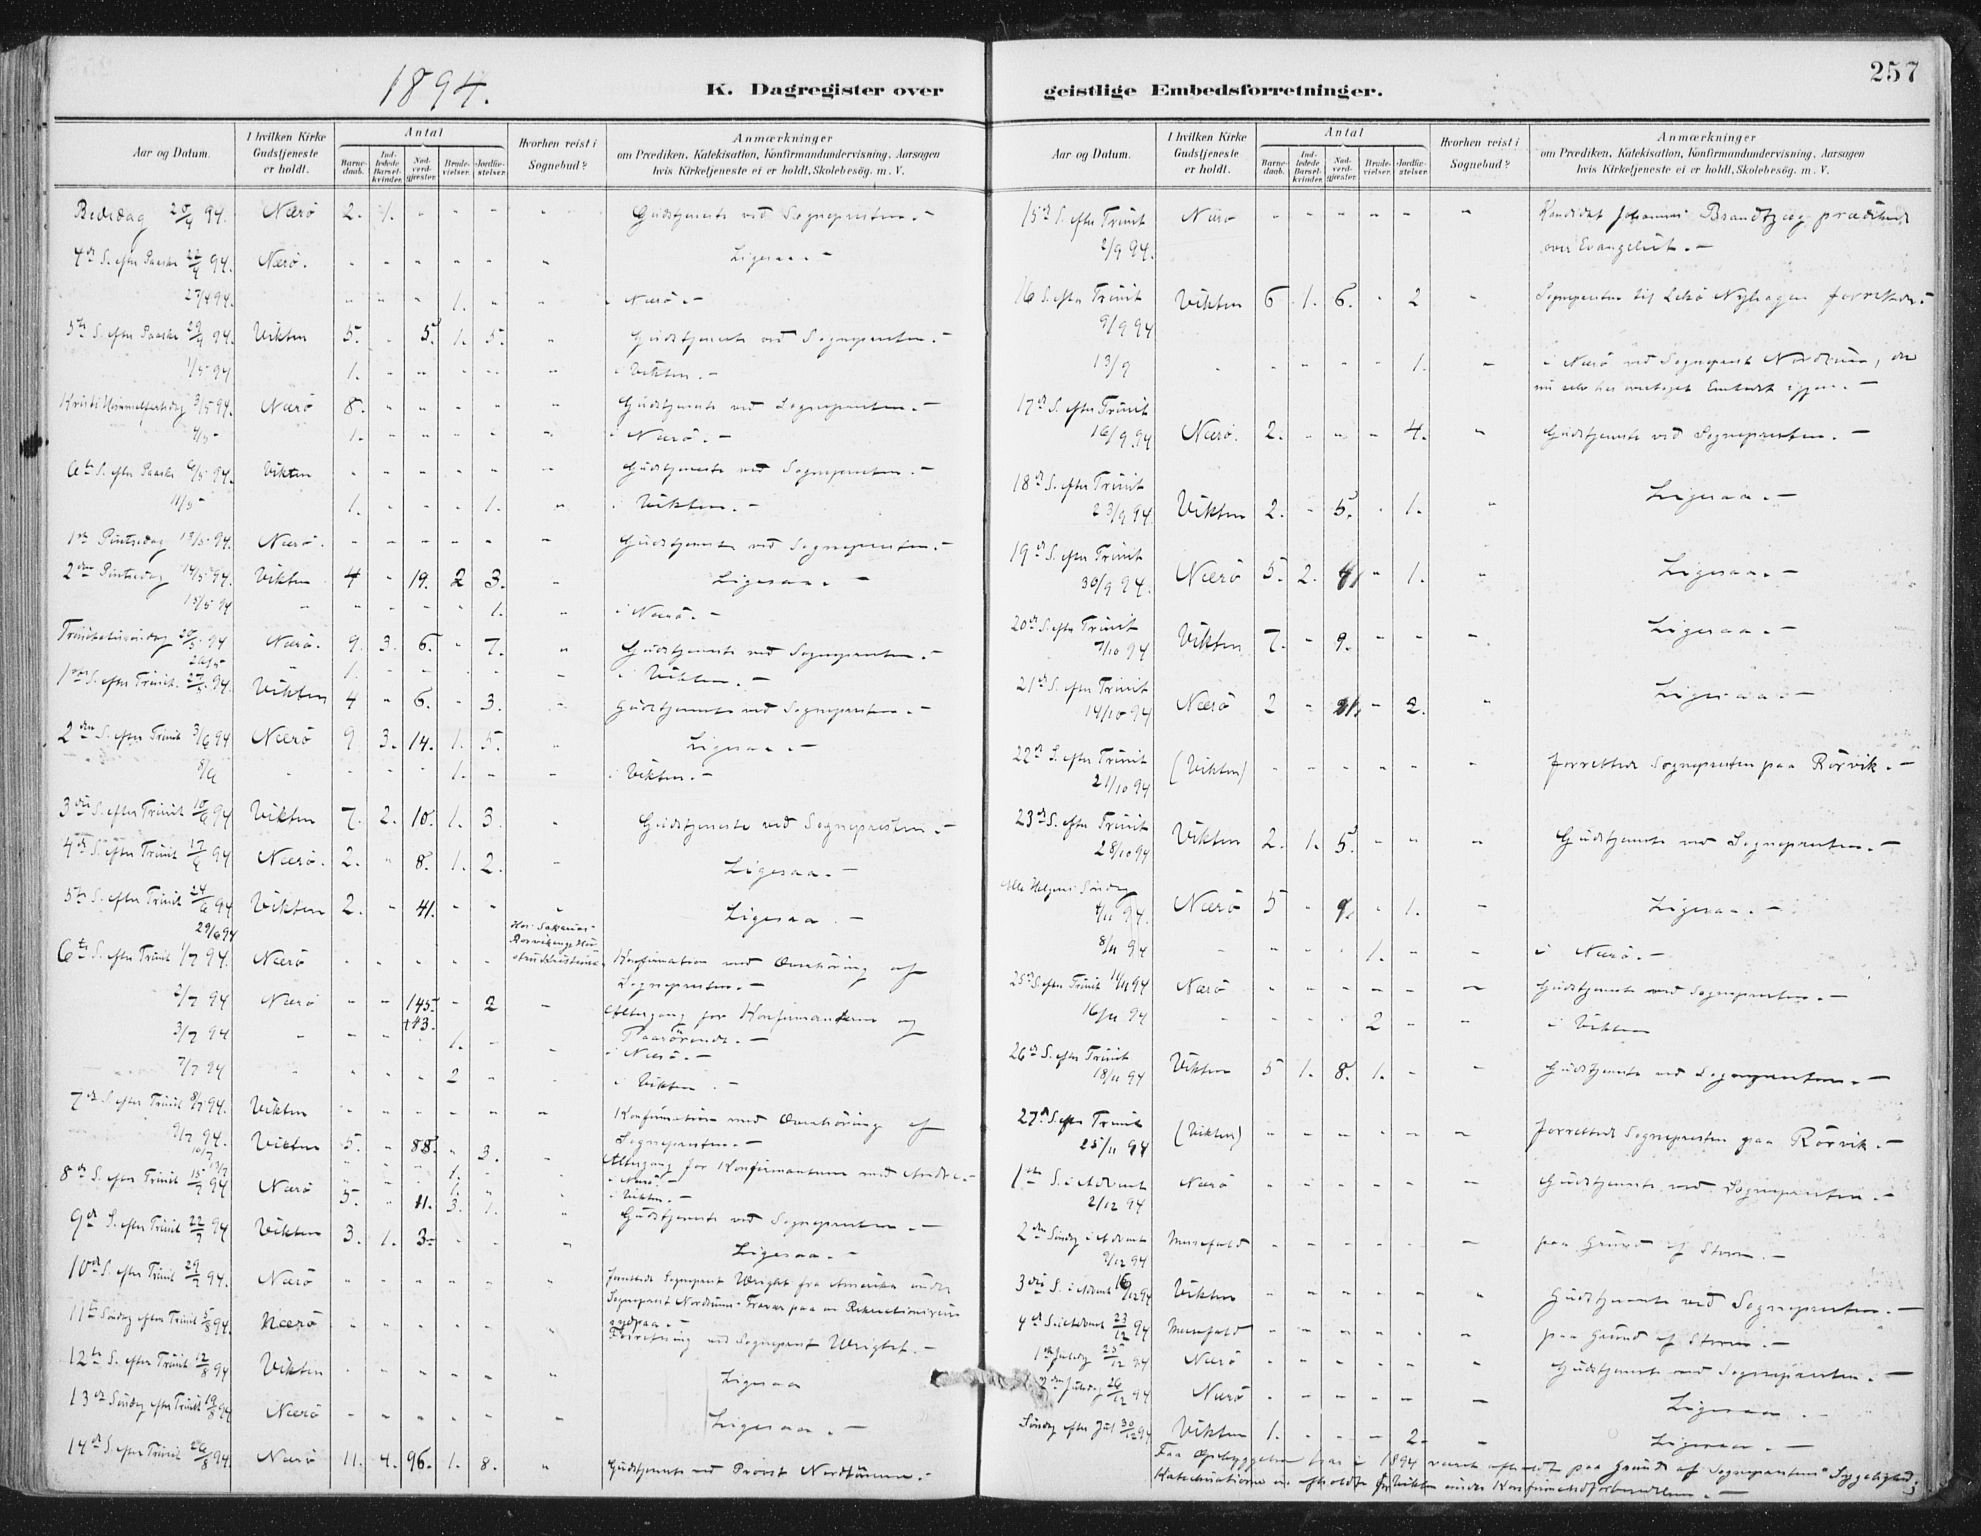 1894.
K. Dagregister over
Aar og Datum.
I hvilken Kirke Gudstjeneste er holdt.
Antal
Barne-daab.
Ind-ledede Barsel-kvinder.
Nad-verd-gjæster.
Brude-vielser.
Jordfæ-stelser.
Hvorhen reist i Sognebud?
Anmærkninger
om Prædiken, Katekisation, Konfirmandundervisning, Aarsagen
hvis Kirketjeneste ei er holdt, Skolebesøg. m. V.
Bededag 20/4 94. Nærö 2. 1. " " " " Gudstjeneste ved Sognepresten. —
4de S. efter Paaske 22/4 94. Nærö. " " " " " " Ligesaa. —
27/4 94. " " " 1. " " Nærö. —
5te S. efter Paaske 29/4 94. Vikten 5. " 5. 1. 5. " Gudstjeneste ved Sognepresten. —
1/5 94 1. " " " " " i Vikten. —
Kristi Himmelfartsdag 3/5 94. Nærö 8. " " " " " Gudstjeneste ved Sognepresten. —
4/5 1. " " " " " i Nærö. —
6te S. efter Paaske 6/5 94. Vikten " " " " " " Gudstjeneste ved Sognepresten. —
11/5 1. " " " 1. " i Vikten. —
1ste Pintsedag 13/5 94. Nærö. " " " " " " Gudstjeneste ved Sognepresten. —
2den Pintsedag 14/5 94. Vikten 4 " 19. 2 3. " Ligesaa. —
15/5 94 " " " " " 1. " i Nærö. —
Trinitatissøndag 20/5 94 Nærö. 9. 3. 6. " 7. " Gudstjeneste ved Sognepresten. —
26/5 " 1. " " " " " i Vikten. —
1ste S. efter Trinit. 27/5 94. Vikten 4 " 6. " 3. " Gudstjeneste ved Sognepresten. —
2den S. efter Trinit 3/6 94 Nærö 9. 3. 14. 1. 5. " Ligesaa. —
8/6 " " " " 1. " " i Vikten. —
3die S. efter Trinit 10/6 94 Vikten 7. 2. 10. 1. 3. " Gudstjeneste ved Sognepresten. —
4de S. efter Trinit 17/6 94 Nærö. 2. " 8. 1. 2. " Ligesaa. —
5te S. efter Trinit 24/6 94 Vikten 2. " 41. " " " Ligesaa. —
29/6 94 Hos Sakarias
6te S. efter Trinit 1/7 94. Nærö " " " " " Konfirmation med Overhöring af
Sognepresten. —
2/7 94 Nærö " " 145. " 2 " Altergang for Konfirmanterne og
+43.
Paarörende. —
3/7 94 " " " " 1. " " i Nærö. —
7/7 94 " " " " 2 " " i Vikten. —
7de S. efter Trinit 8/7 94. Vikten " " " " " " Konfirmation med Overhöring af
Sognepresten. —
9/7 94. Vikten 5. " 88. " 3. " Altergang for Konfirmanterne med Andre. —
10/7 " " " 1. " " i Nærö. —
13/7 " " " 1. " " i Vikten. —
8de S. efter Trinit 15/7 94 Nærö 5. " 11. 3. 1. " Gudstjeneste ved Sognepresten. —
9de S. efter Trinit 22/7 94 Vikten 3. 1. 3. " " " Ligesaa. —
10de S. efter Trinit 29/7 94. Nærö " " " " " " Sogneprest Wright fra Amerika under
Sogneprest Nordtums Fravær paa en Rekreationsreise
sydpaa. —
11te Söndag efter Trinit 5/8 94. Nærö " " " " " " Forretning ved Sogneprest Wright. —
12te S. efter Trinit 12/8 94 Vikten " " " " " " Ligesaa
13de Söndag efter Trinit 19/8 94 Nærö " " " " " " Ligesaa. —
14de S. efter Trinit 26/8 94. Nærö 11. 4. 96. 1. 8. " Gudstjeneste ved Provst —
257
geistlige Embedsforretninger.
Aar og Datum.
I hvilken Kirke Gudstjeneste er holdt.
Antal
Barne-daab.
Ind-ledede Barsel-kvinder.
Nad-verd-gjæster.
Brude-vielser.
Jordfæ-stelser.
Hvorhen reist i Sognebud?
Anmærkninger
om Prædiken, Katekisation, Konfirmandundervisning, Aarsagen
hvis Kirketjeneste ei er holdt, Skolebesøg. m. V.
15de S. efter Trinit 2/9 94. Nærö " " " " " " Kandidat Johannes Brandtzæg prædikede
over Evangeliet. —
16 S. efter Trinit 9/9 94 Vikten 6 1. 6. " 2 " Sognepresten til Lekö Nyhagen forrettede. —
13/9 " " " " 1. " i Nærö ved Sogneprest, der
nu selv har overtaget Embedet igjen. —
17de S. efter Trinit 16/9 94 Nærö. 2. " " " 4. " Gudstjeneste ved Sognepresten. —
18de S. efter Trinit 23/9 94. Vikten 2. " 5. " 1. " Ligesaa. —
19de S. efter Trinit 30/9 94. Nærö 5. 2. " 1. " Ligesaa. —
20de S. efter Trinit 7/10 94 Vikten 7. " 9. " " " Ligesaa. —
21de S. efter Trinit 14/10 94 Nærö 2 " " 2. " Ligesaa. —
22de S. efter Trinit 21/10 94 (Vikten) " " " " " " Forrettede Sognepresten paa Rörvik. —
23de S. efter Trinit 28/10 94 Vikten 2. 1. 5. " " " Gudstjeneste ved Sognepresten. —
Alle Helgens Søndag 4/11 94. Nærö 5 " 9. " 1. " Ligesaa. —
8/11 94 " " " " 1. " " i Nærö. —
25de S. efter Trinit 11/11 94 Nærö " " " " " " Gudstjeneste ved Sognepresten. —
16/11 94 " " " " 2 " " i Vikten
26de S. efter Trinit 18/11 94 Vikten 5 1. 8. 1. " " Gudstjeneste ved Sognepresten. —
27de S. efter Trinit 25/11 94 (Vikten) " " " " " " Forrettede Sognepresten paa Rörvik. —
1ste S. i Advent 2/12 94 Nærö " " " " " " Gudstjeneste ved Sognepresten. —
2den Söndag i Advent 9/12 94 Messefald " " " " " " paa Grund af Storm. —
3die S. i Advent 16/12 94 Vikten " " " " " " Gudstjeneste ved Sognepresten. —
4de S. i Advent 23/12 94 Messefald " " " " " " paa Grund af Storm. —
1ste Juledag 25/12 94 Nærö " " " " " " Gudstjeneste ved Sognepresten. —
2den Juledag 26/12 94 Nærö " " " " " " Ligesaa. —
Søndag efter Jul 30/12 94 Vikten 1. " " " 2. " Ligesaa. —
har i 1894 været afholdt paa Grund af Sogneprestens Sygelighed;
Katechisationen er afholdt for Vikten under Konfirmandforberedelsen. —